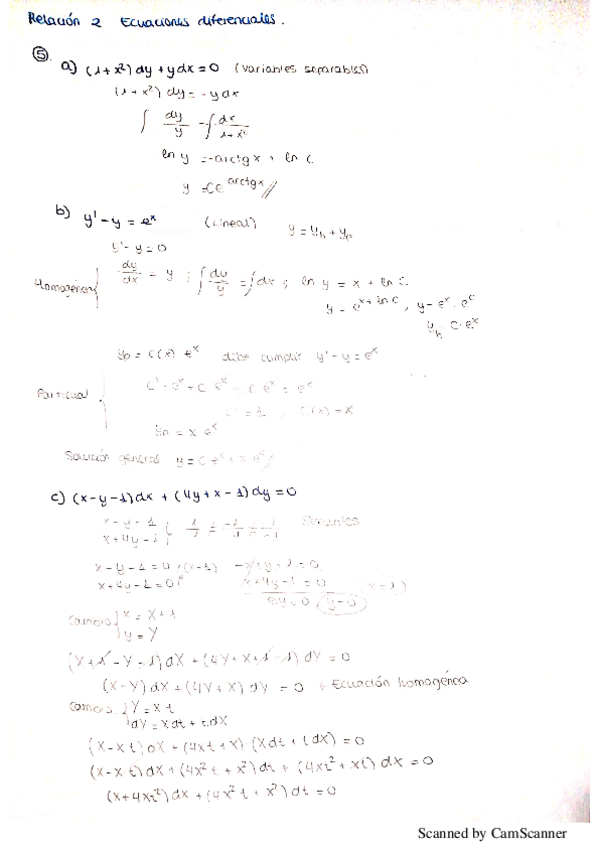 Relación 2 Ecuaciones diferenciales.
⑤
a) (1+x²)dy + ydx = 0 (variables separables)
(1+x²) dy = -ydx
∫ dy/y = -∫ dx/1+x²
ln y = -arctgx + ln C
y = Ce^arctgx //
b) y' - y = e^x (Lineal) y = y_h + y_p
y' - y = 0
Homogénea { dy/dx = y ; ∫ dy/y = ∫ dx ; ln y = x + ln C.
y = e^x+lnC , y = e^x · e^C
y_h C·e^x
yp = C(x) e^x debe cumplir y' - y = e^x
Particular { C'·e^x + C e^x - C e^x = e^x
C' = 1 , C(x) = x
= x e^x
Solución general y = C e^x + x e^x //
c) (x-y-1)dx + (4y+x-1)dy = 0
x-y-1
x+4y-1
x-y-1=0
x+4y-1=0
x+4y-1=0 (x=1)
y=0
Cambio { x = X+1
y = Y
(X+1-Y-1)dX + (4Y+X+1-1)dY = 0
(X-Y)dX + (4Y+X)dY = 0 Ecuación homogénea
Cambio { Y = Xt
dY = Xdt + tdX
(X-Xt)dX + (4Xt+X)(Xdt+tdX) = 0
(X-Xt)dX + (4X²t+X²)dt + (4Xt²+Xt)dX = 0
(X+4Xt²)dX + (4X²t+X²)dt = 0
Scanned by CamScanner